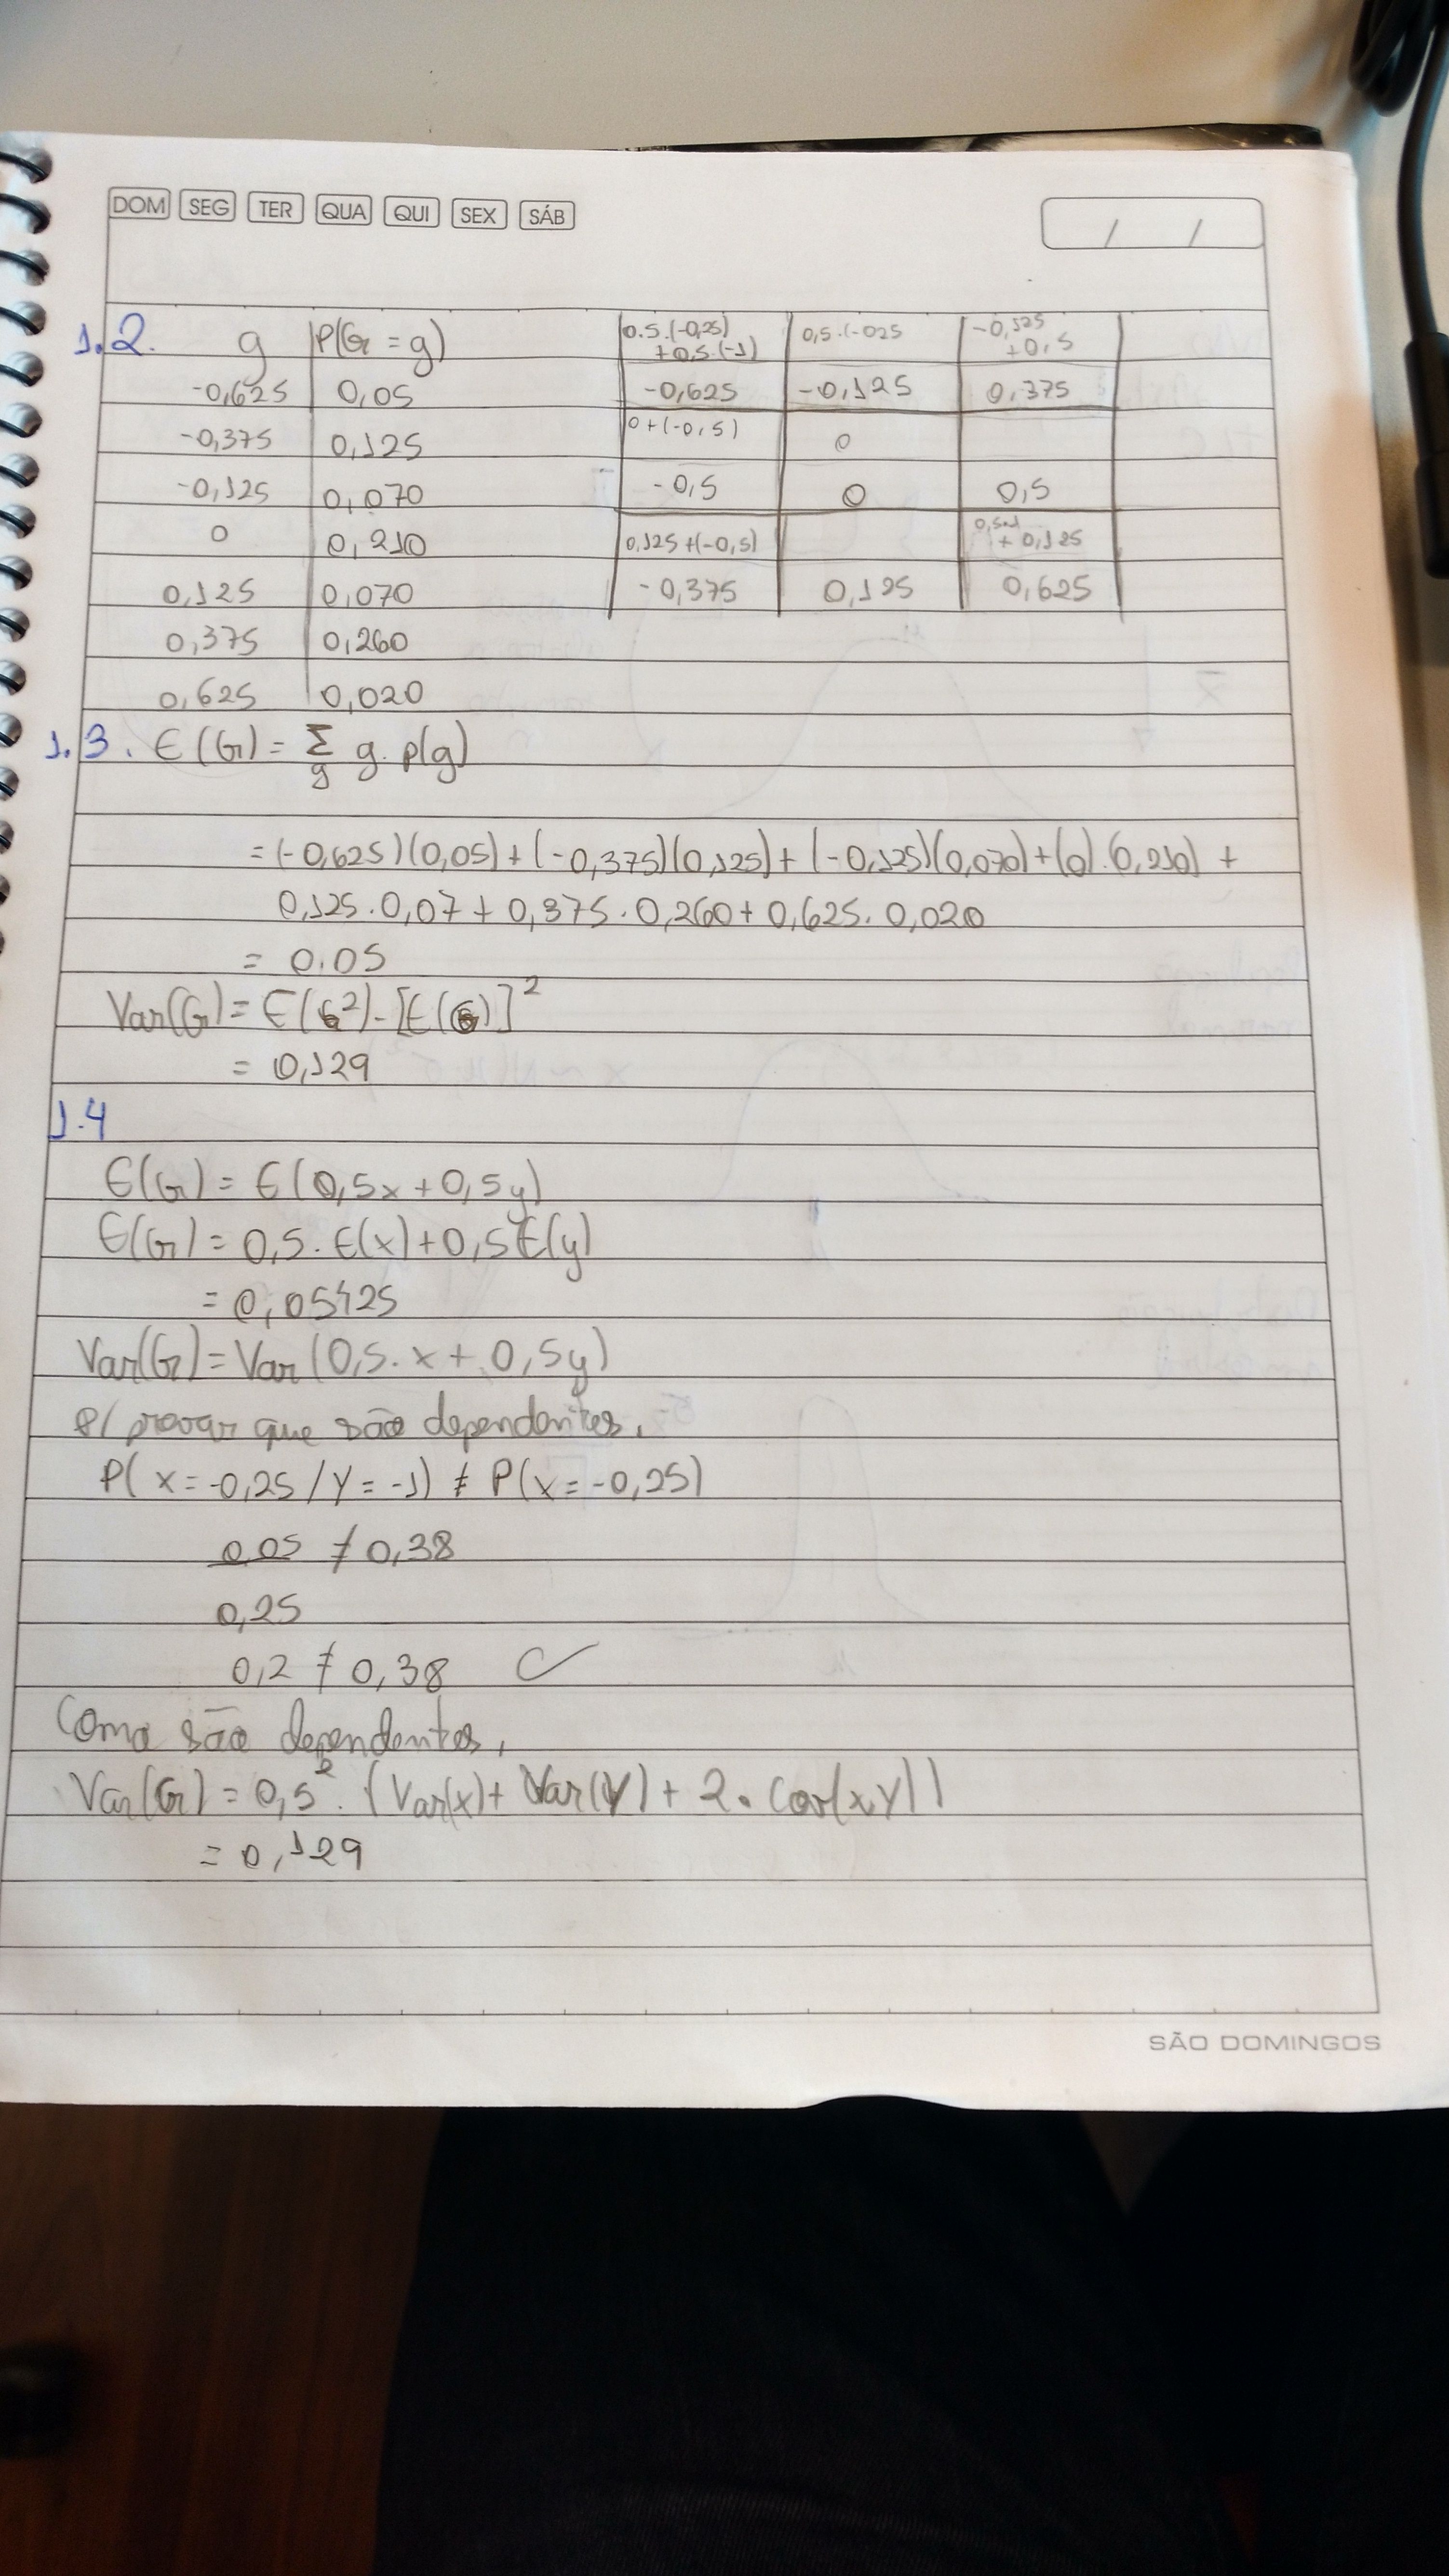 DOM SEG TER QUA QUI SEX SÁB
/ /
1.2. g P(G = g)
-0,625 0,05
-0,375 0,125
-0,125 0,070
0 0,210
0,125 0,070
0,375 0,260
0,625 0,020
0.5.(-0,25) +0,5.(-1) 0,5.(-025 -0,125 +0,5
-0,625 -0,125 0,375
0+(-0,5) 0
-0,5 0 0,5
0,125+(-0,5) + 0,125
-0,375 0,125 0,625
1.3. E(G) = Σ g. p(g)
g
= (-0,625)(0,05) + (-0,375)(0,125) + (-0,125)(0,070) + (0).(0,210) +
0,125.0,07 + 0,375.0,260 + 0,625.0,020
= 0.05
Var(G) = E(G²) - [E(G)]²
= 0,129
1.4
E(G) = E(0,5x + 0,5y)
E(G) = 0,5. E(x) + 0,5 E(y)
Var(G) = Var(0,5. x + 0,5y)
p/ provar que são dependentes,
P(x = -0,25 / Y = -1) ≠ P(x = -0,25)
0,05 ≠ 0,38
0,25
0,2 ≠ 0,38 ✓
Como são dependentes,
Var(G) = 0,5². (Var(x) + Var(Y) + 2. Cov(x,Y))
= 0,129
SÃO DOMINGOS